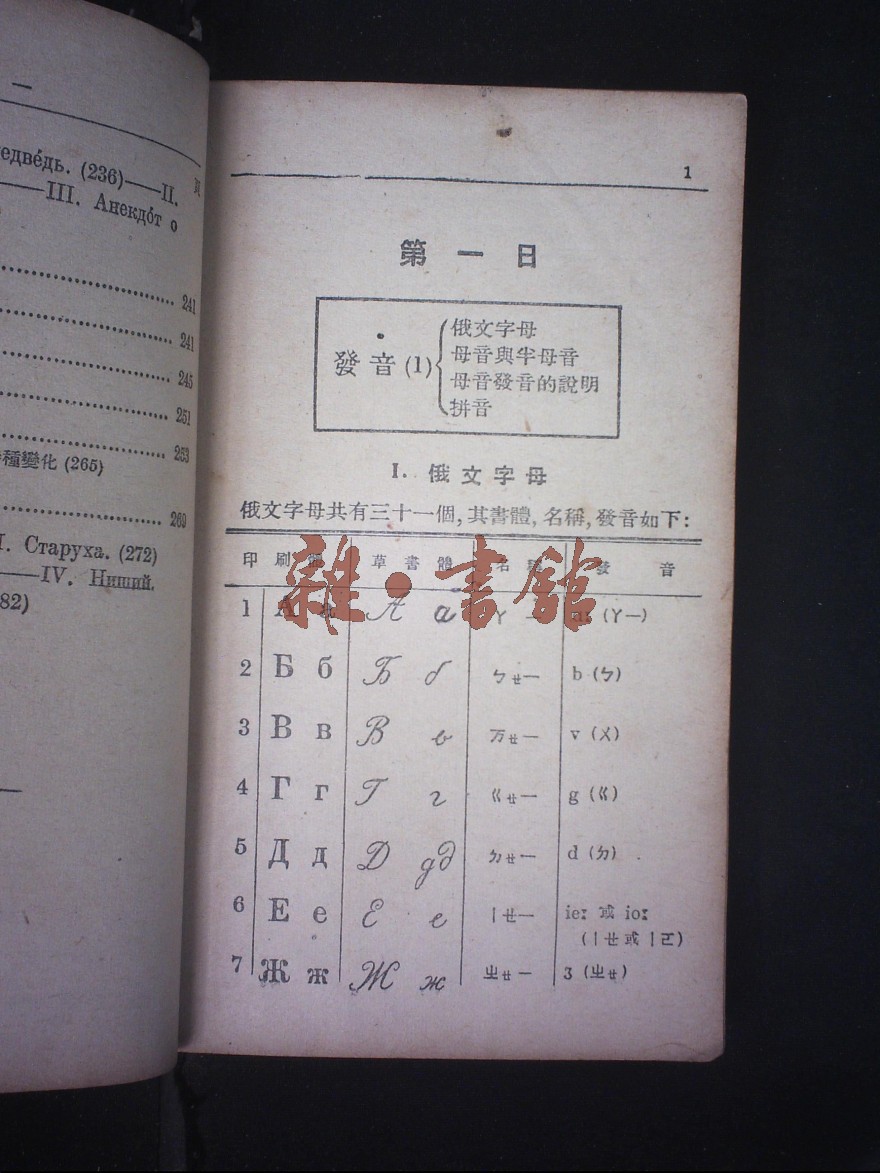 一
едвéдь. (236)——II. 頁
——III. Анекдóт о
241
241
245
251
253
種變化 (265)
269
I. Старуха. (272)
——IV. Нищий.
82)
1
第一日
發音 (1)
俄文字母
母音與半母音
母音發音的說明
拼音
I. 俄文字母
俄文字母共有三十一個, 其書體, 名稱, 發音如下:
印刷體 草書體 名稱 發音
雜·書館
1 А а А а ㄚ一 a: (ㄚ一)
2 Б б Б б ㄅㄝ一 b (ㄅ)
3 В в В в ㄪㄝ一 v (ㄨ)
4 Г г Г г ㄍㄝ一 g (ㄍ)
5 Д д Д д ㄉㄝ一 d (ㄉ)
6 Е е Е е ㄧㄝ一 ie: 或 io:
(ㄧㄝ或ㄧㄛ)
7 Ж ж Ж ж ㄓㄝ一 ʒ (ㄓㄝ)